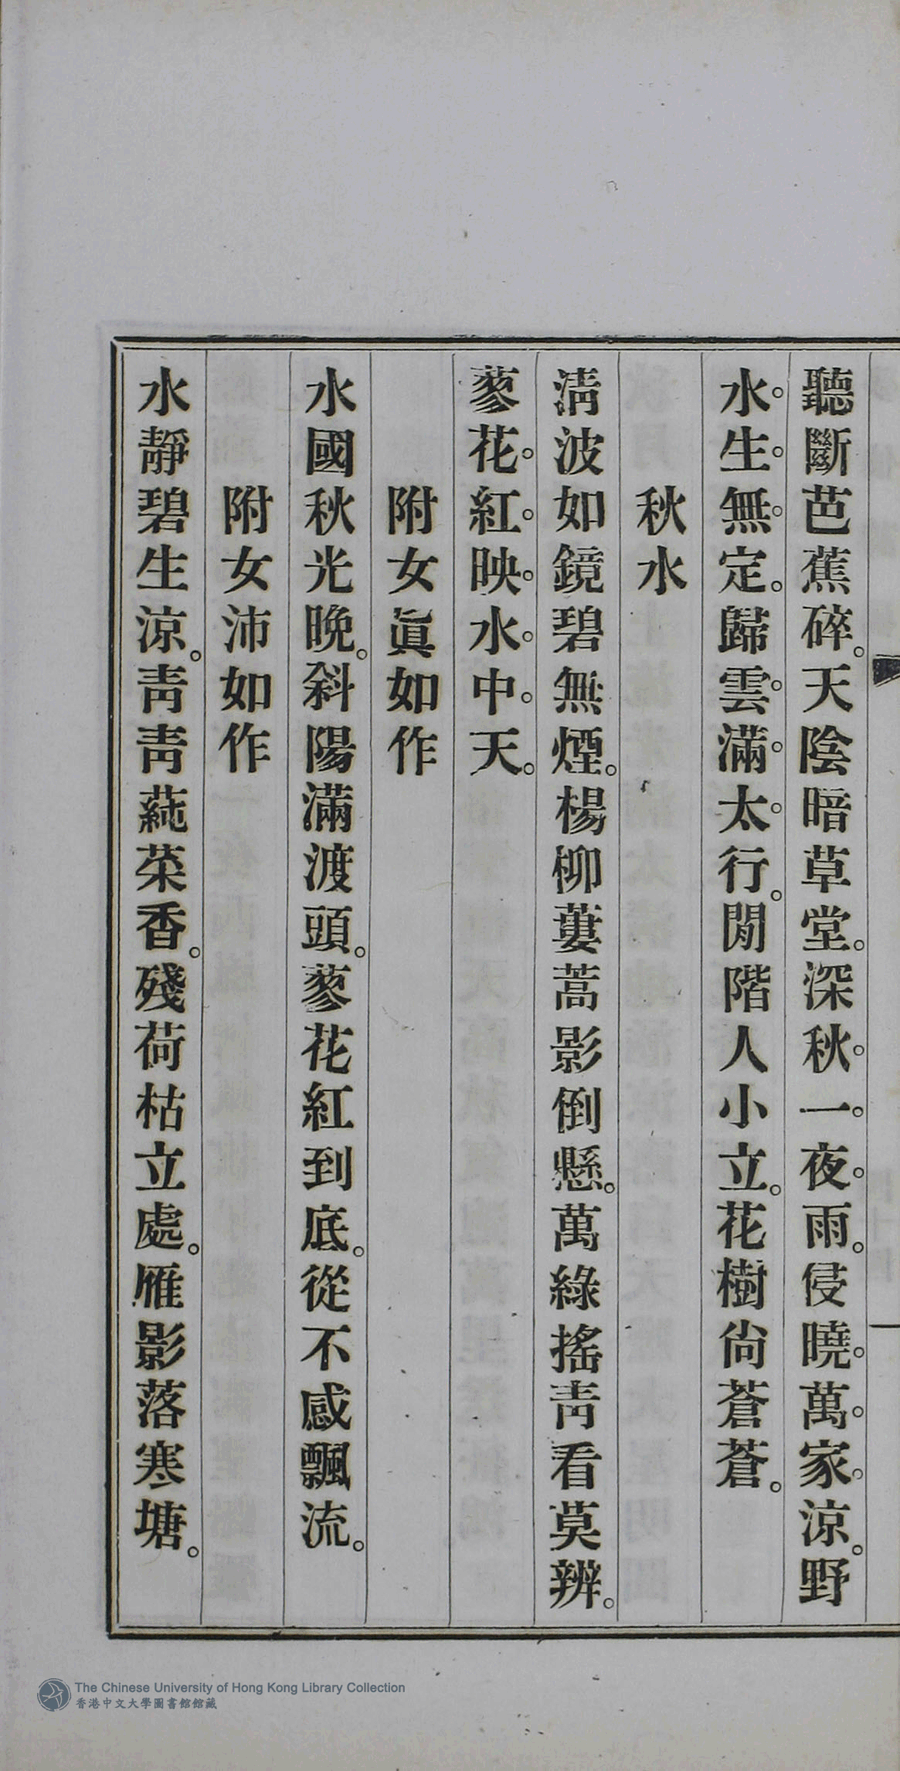 聽斷芭蕉碎。天陰暗草堂。深秋一夜雨。侵曉萬家涼。野
水生無定。歸雲滿太行。閒階人小立。花樹尙蒼蒼。
秋水
淸波如鏡碧無煙。楊柳蔞蒿影倒懸。萬綠搖靑看莫辨。
蓼花紅映水中天。
附女眞如作
水國秋光晚。斜陽滿渡頭。蓼花紅到底。從不感飄流。
附女沛如作
水靜碧生涼。靑靑蒓菜香。殘荷枯立處。雁影落寒塘。
The Chinese University of Hong Kong Library Collection
香港中文大學圖書館館藏